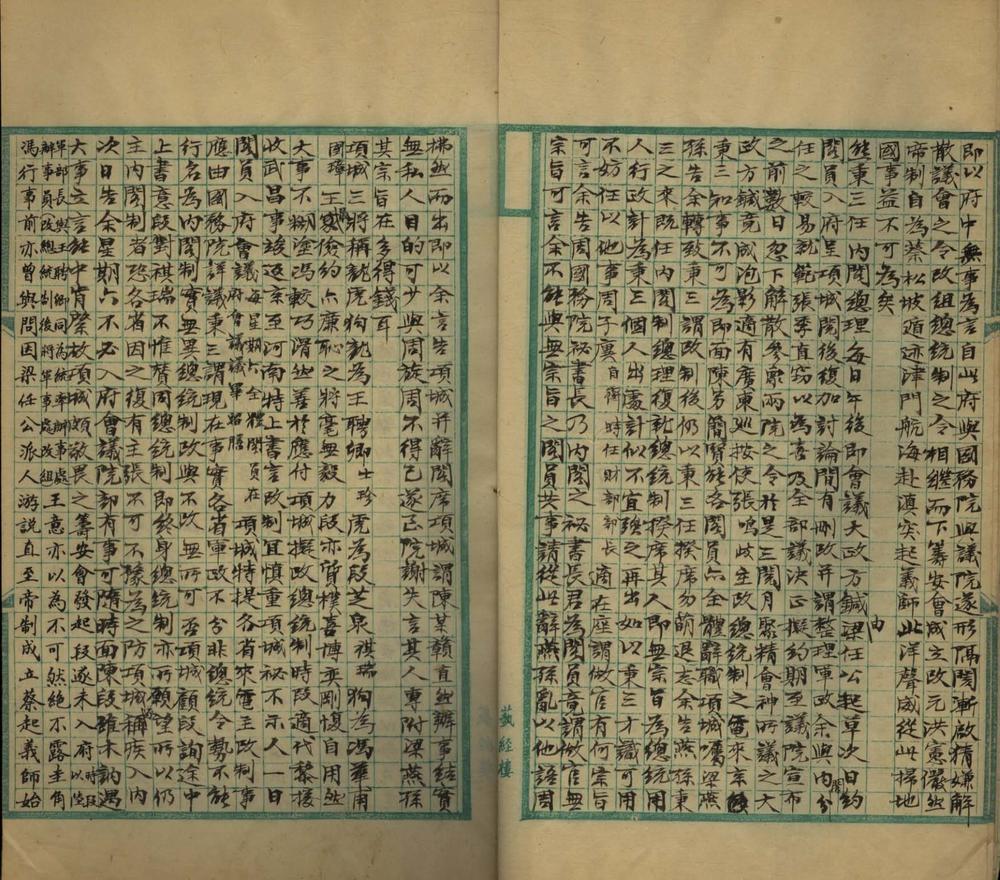 即以府中無事為言自此府與國務院與議院遂形隔閡漸啟精嫌解
散議會之令改組總統制之令相繼而下籌安會成立改元洪憲儼然
帝制自為蔡松坡遁迹津門航海赴滇突起義師北洋聲威從此掃地
國事益不可為矣
熊秉三任內閣總理每日午後即會議大政方鍼由梁任公起草次日約
閣員入府呈項城閱後復加討論間有刪改并謂整理軍政余與內閣分
任之較易就範張季直竊以為喜及全部議決正擬約期至議院宣布
之前數日忽下解散參眾兩院之令於是三閱月聚精會神所議之大
政方鍼竟成泡影適有廣東巡按使張鳴岐主改總統制之電來京
秉三知事不可為即面陳另簡賢能各閣員亦全體辭職項城囑梁燕
孫告余轉致秉三謂改制後仍以秉三任揆席勿萌退志余告燕孫秉
三之來既任內閣制總理復新總統制揆席其人即無宗旨為總統用
人行政計為秉三個人出處計似不宜強之再出如以秉三才識可用
不妨任以他事周子廙自齊時任財部部長適在座謂做官有何宗旨
可言余告周國務院祕書長乃內閣之祕書長君為閣員竟謂做官無
宗旨可言余不能與無宗旨之閣員共事請從此辭燕孫亂以他語周
拂然而出即以余言告項城并辭閣席項城謂陳某贛直然辦事結實
無私人目的可少與周旋周不得已遂至院謝失言其人專附梁燕孫
其宗旨在多得錢耳
項城三將稱龍虎狗龍為王聘卿士珍虎為段芝泉祺瑞狗為馮華甫
國璋王儉約亦廉恥之將毫無毅力段亦質樸喜博奕剛愎自用然
大事不糊塗馮較巧滑然善於應付項城擬改總統制時段適代黎接
收武昌事竣返京至河南特上書言改制宜慎重項城祕不示人一日
閣員入府會議每星期六全體閣員在府會議議畢略膳項城特提各省來電主改制事
應由國務院詳議秉三謂現在事實各省軍政不分非總統令勢不能
行名為內閣制實無異總統制改與不改無所可否項城顧段詢途中
上書意段對祺瑞不惟贊同總統制即終身總統制亦所願望所以仍
主內閣制者恐各省因之復有主張不可不豫為之防項城稱疾入內
次日告余星期六不必入府會議院部有事可隨時面陳段雖木訥遇
大事立言能中肯綮故項城頗敬畏之籌安會發起段遂未入府時段以陸
軍部長與王聘卿同為統率辦事處辦事員改總統制後將軍事處改組王意亦以為不可然絕不露圭角
馮行事前亦曾與問因梁任公派人游說直至帝制成立蔡起義師始
荔經樓